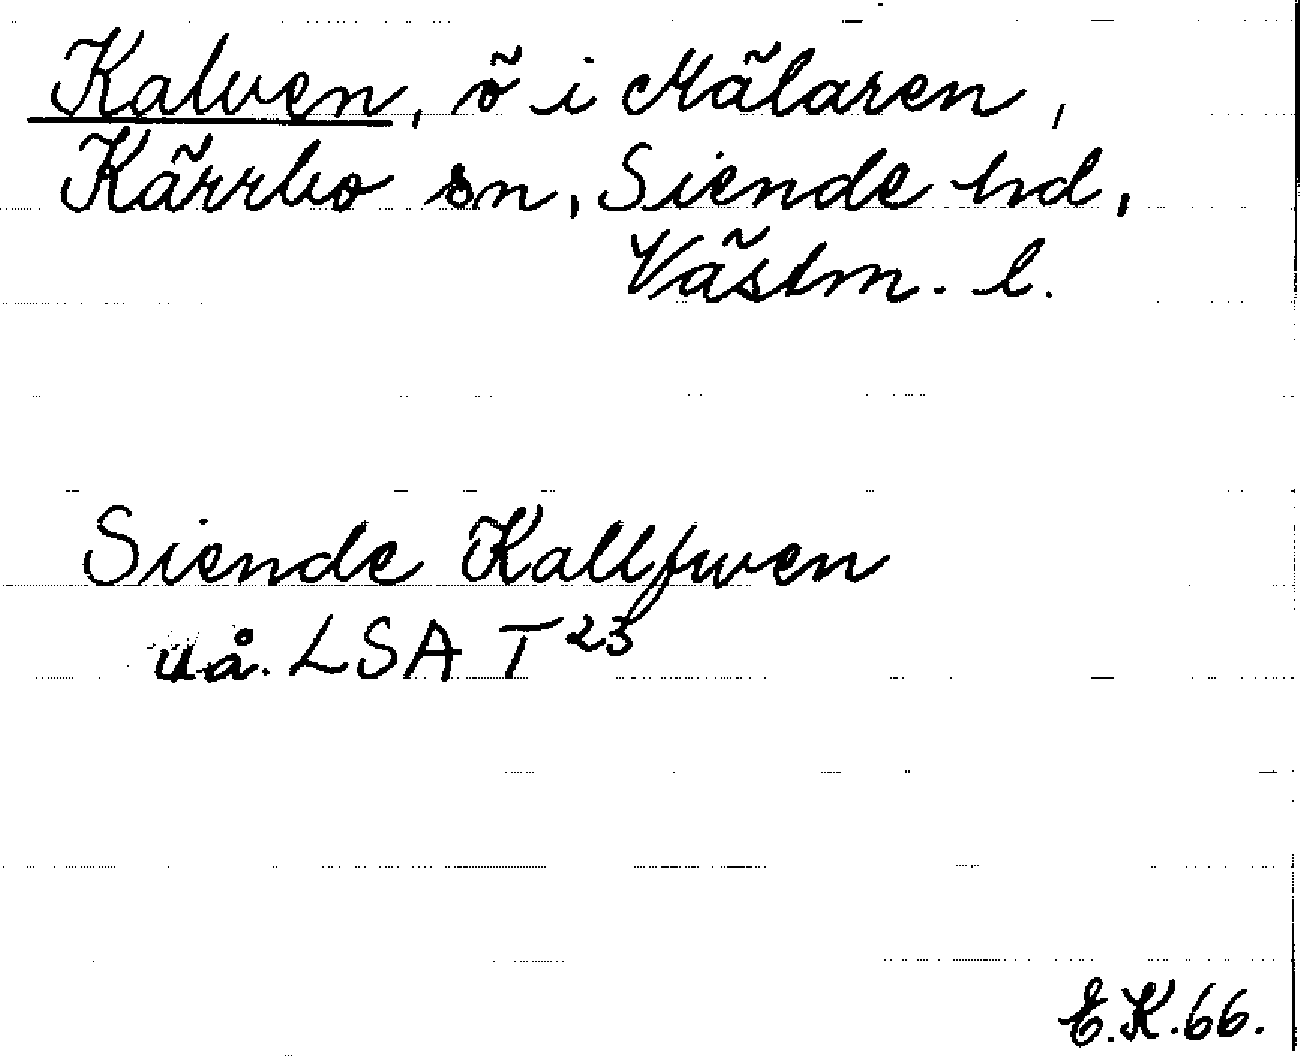 Kalven, ö i Mälaren,
Kärrbo sn, Siende hd,
Västm. l.
Siende Kallfwen
uå. LSA T 23
E.K.66.